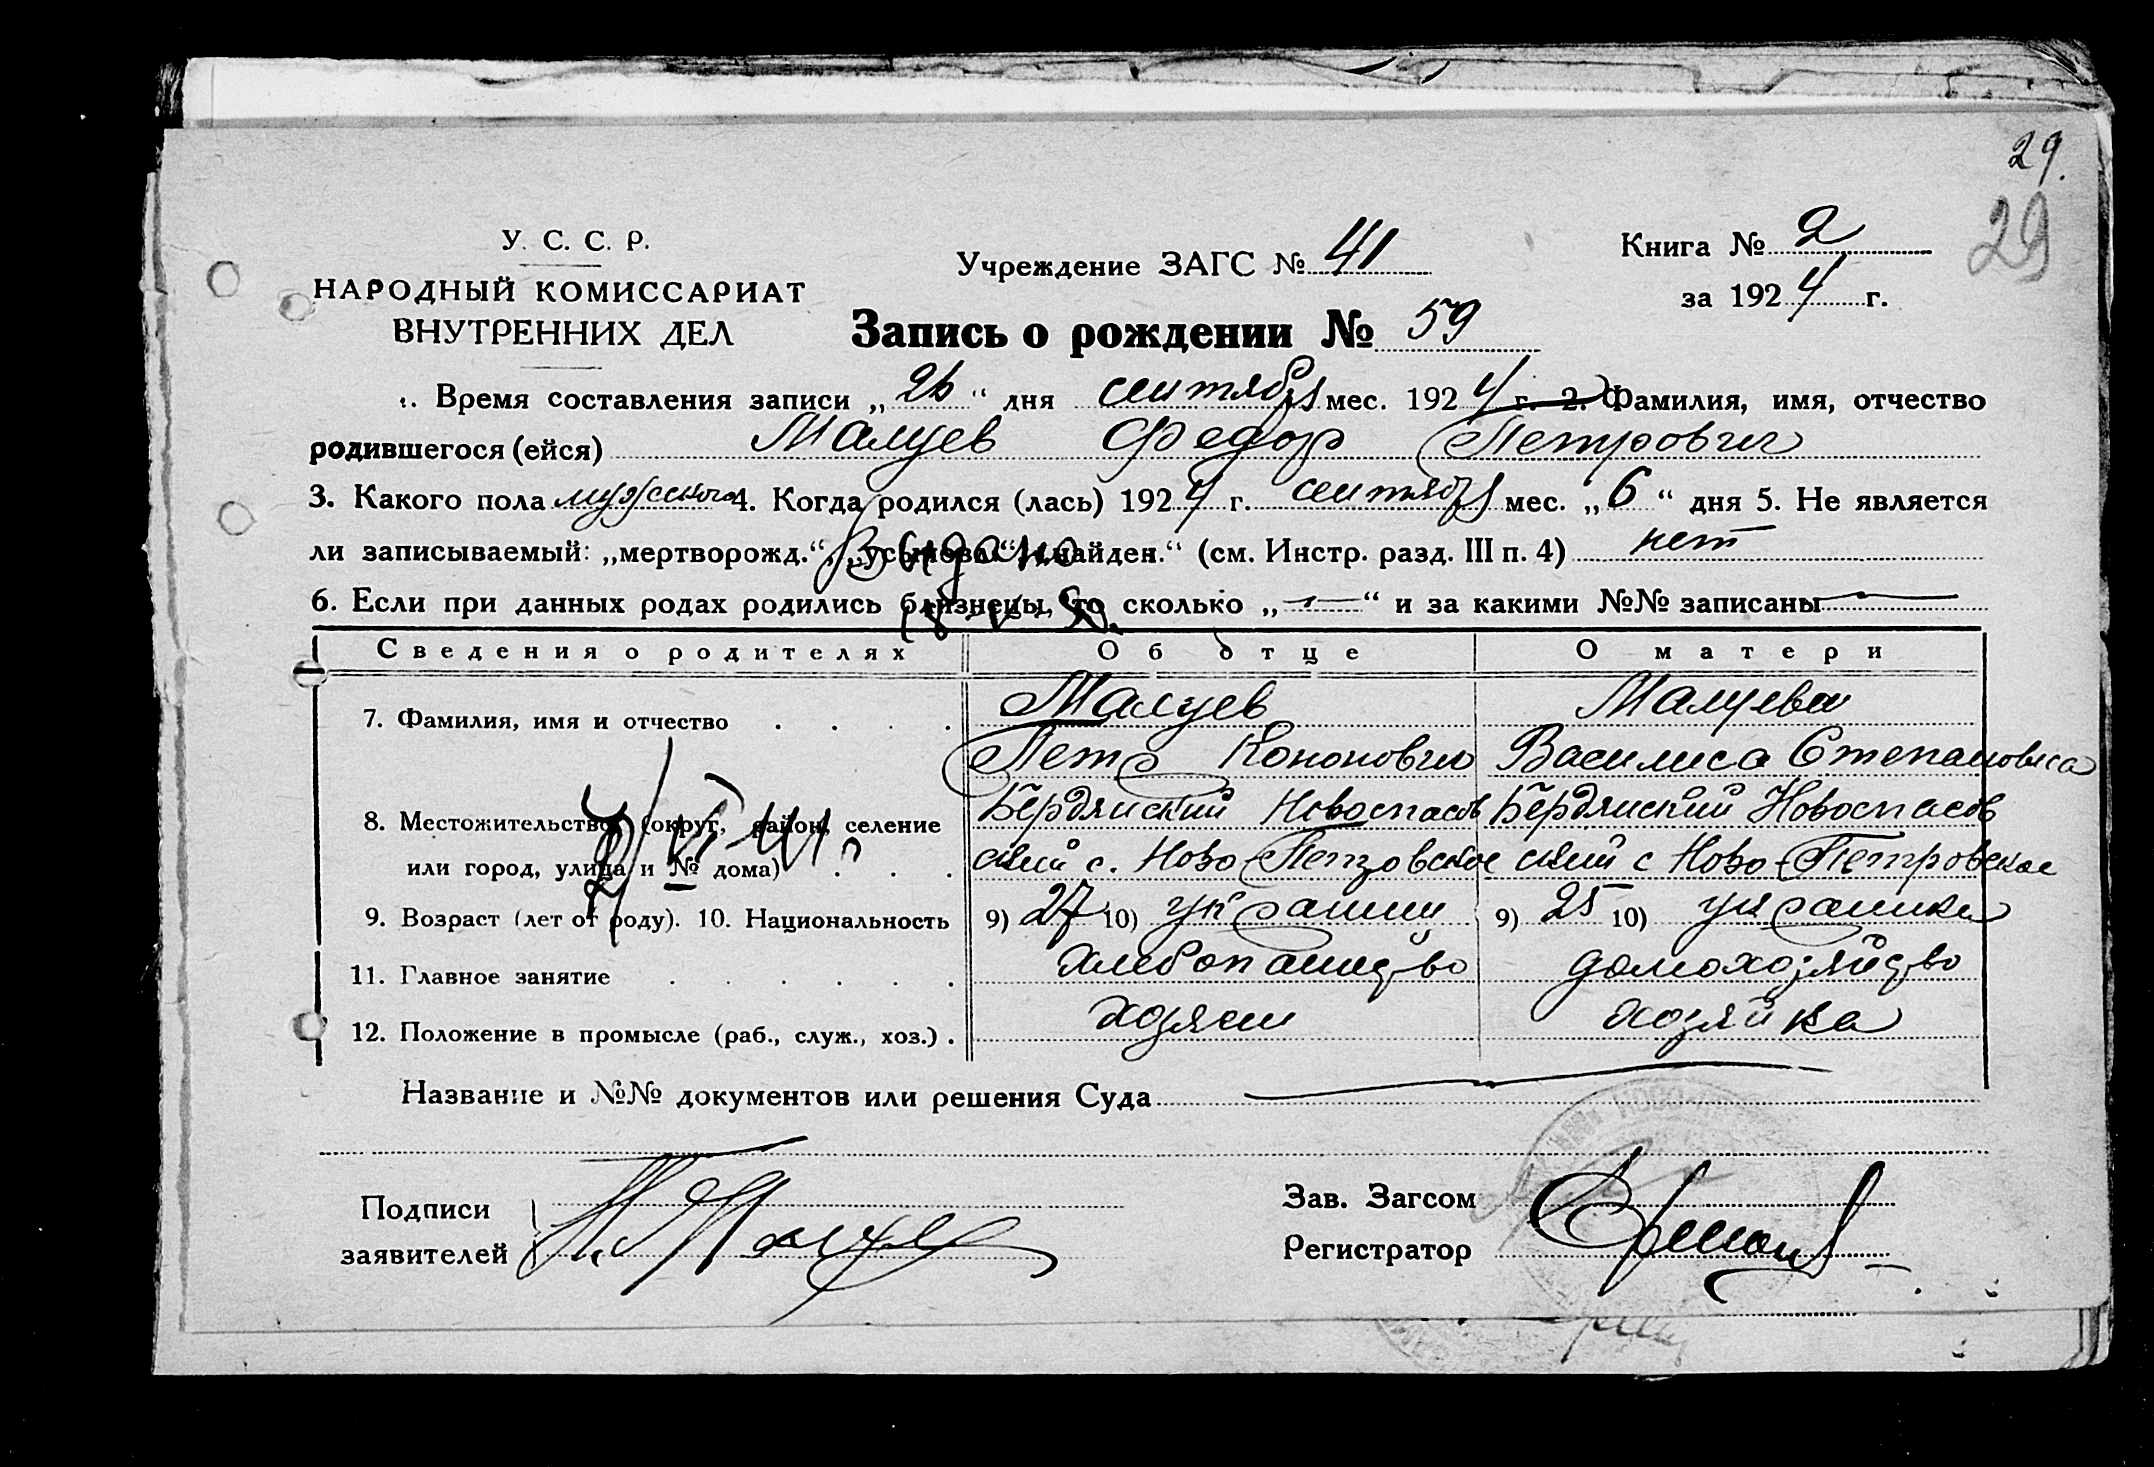 29.
29
У. С. С. Р.
НАРОДНЫЙ КОМИССАРИАТ
ВНУТРЕННИХ ДЕЛ
Учреждение ЗАГС № 41
Книга № 2
за 1924 г.
Запись о рождении № 59
1. Время составления записи „26“ дня сентября мес. 1924 г. 2. Фамилия, имя, отчество
родившегося (ейся) Малуев Федор Петрович
3. Какого пола мужского 4. Когда родился (лась) 1924 г. сентября мес. „6“ дня 5. Не является
ли записываемый: „мертворожд.“, „усыновл.“, „найден.“ (см. Инстр. разд. III п. 4) нет
Выдано
6. Если при данных родах родились близнецы, то сколько „—“ и за какими №№ записаны —
Сведения о родителях Об отце О матери
7. Фамилия, имя и отчество Малуев Малуева
Петр Кононович Василиса Степановна
8. Местожительство (округ, район, селение Бердянский Новоспасов Бердянский Новоспасов
или город, улица и № дома) ский с. Ново-Петровское ский с Ново-Петровское
9. Возраст (лет от роду). 10. Национальность 9) 27 10) украинец 9) 25 10) украинка
11. Главное занятие хлебопашество домохозяйство
12. Положение в промысле (раб., служ., хоз.) хозяин хозяйка
Название и №№ документов или решения Суда —
Подписи
заявителей
Зав. Загсом
Регистратор